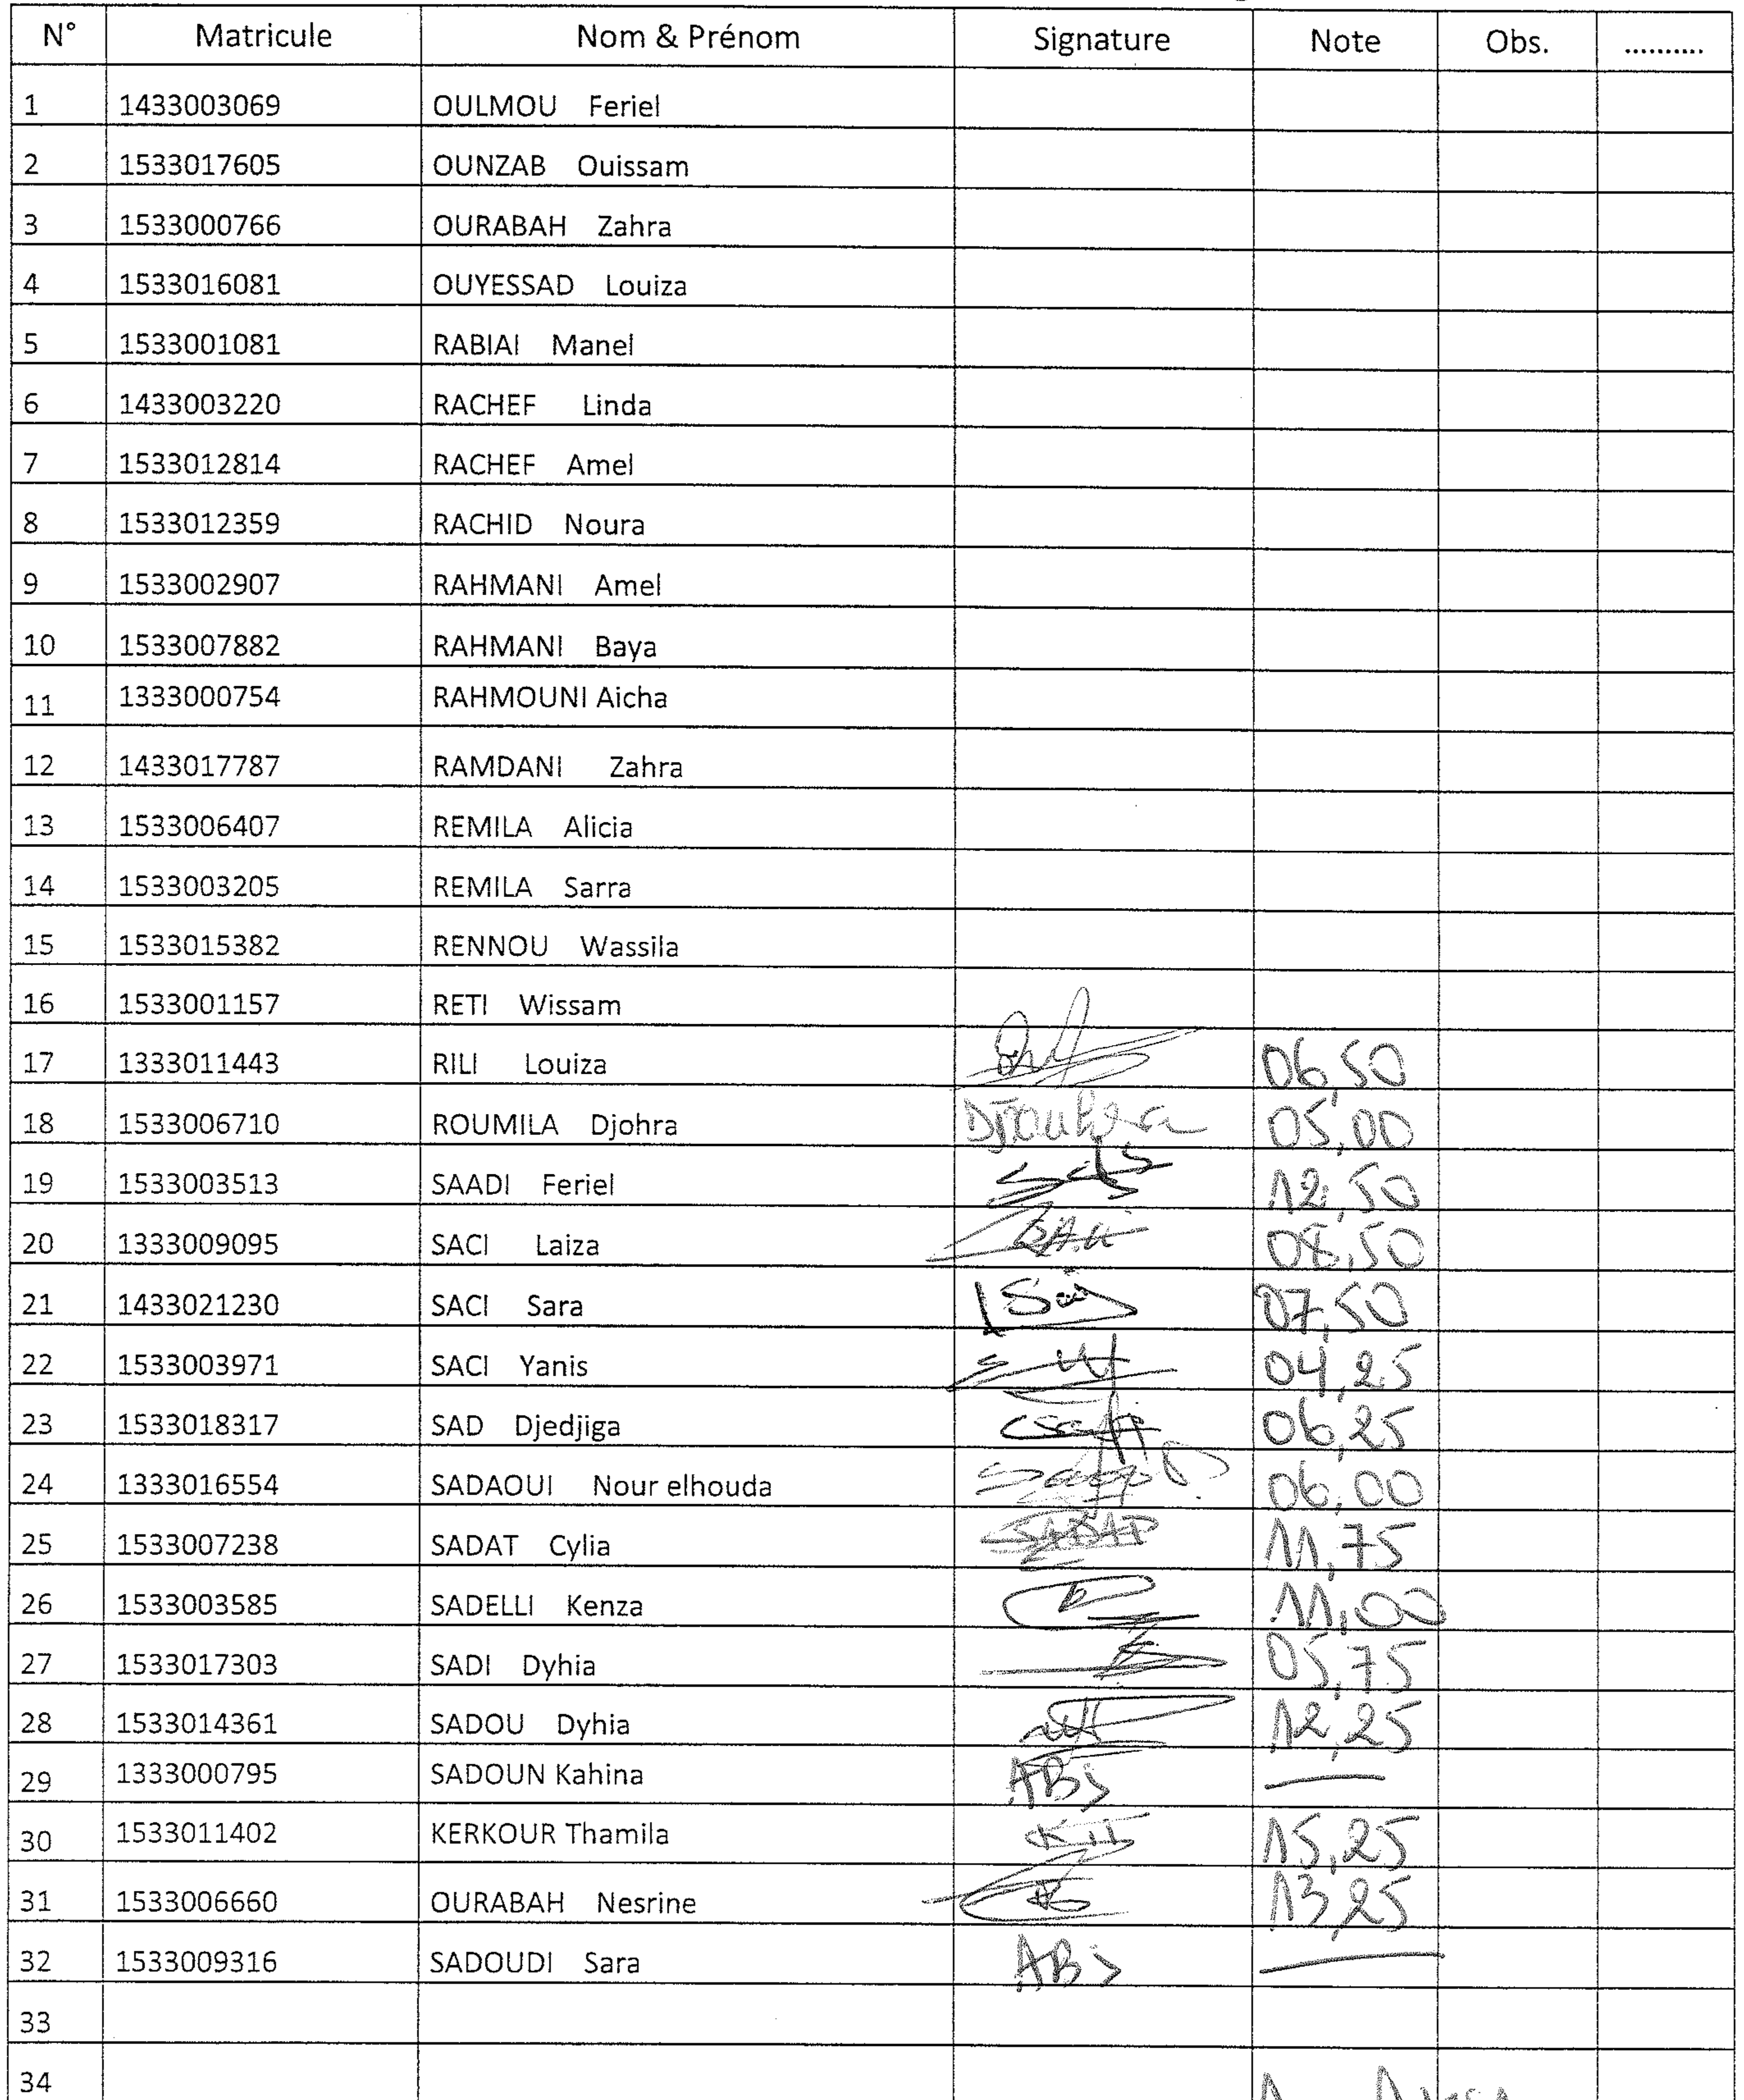 N° Matricule Nom & Prénom Signature Note Obs. ..........
1 1433003069 OULMOU Feriel
2 1533017605 OUNZAB Ouissam
3 1533000766 OURABAH Zahra
4 1533016081 OUYESSAD Louiza
5 1533001081 RABIAI Manel
6 1433003220 RACHEF Linda
7 1533012814 RACHEF Amel
8 1533012359 RACHID Noura
9 1533002907 RAHMANI Amel
10 1533007882 RAHMANI Baya
11 1333000754 RAHMOUNI Aicha
12 1433017787 RAMDANI Zahra
13 1533006407 REMILA Alicia
14 1533003205 REMILA Sarra
15 1533015382 RENNOU Wassila
16 1533001157 RETI Wissam
17 1333011443 RILI Louiza 06,50
18 1533006710 ROUMILA Djohra Djouhra 05,00
19 1533003513 SAADI Feriel 12,50
20 1333009095 SACI Laiza 08,50
21 1433021230 SACI Sara 07,50
22 1533003971 SACI Yanis 04,25
23 1533018317 SAD Djedjiga 06,25
24 1333016554 SADAOUI Nour elhouda 06,00
25 1533007238 SADAT Cylia SADAT 11,75
26 1533003585 SADELLI Kenza 11,00
27 1533017303 SADI Dyhia 05,75
28 1533014361 SADOU Dyhia 12,25
29 1333000795 SADOUN Kahina ABS —
30 1533011402 KERKOUR Thamila 15,25
31 1533006660 OURABAH Nesrine 13,25
32 1533009316 SADOUDI Sara ABS —
33
34